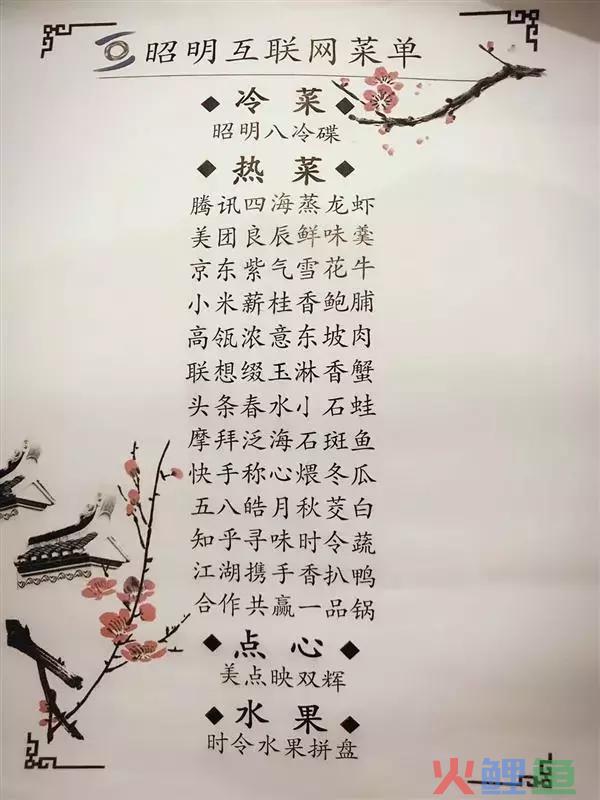 昭明互联网菜单
◆ 冷 菜 ◆
昭明八冷碟
◆ 热 菜 ◆
腾讯四海蒸龙虾
美团良辰鲜味羹
京东紫气雪花牛
小米薪桂香鲍脯
高瓴浓意东坡肉
联想缀玉淋香蟹
头条春水小石蛙
摩拜泛海石斑鱼
快手称心煨冬瓜
五八皓月秋茭白
知乎寻味时令蔬
江湖携手香扒鸭
合作共赢一品锅
◆ 点 心 ◆
美点映双辉
◆ 水 果 ◆
时令水果拼盘
火鲤鱼